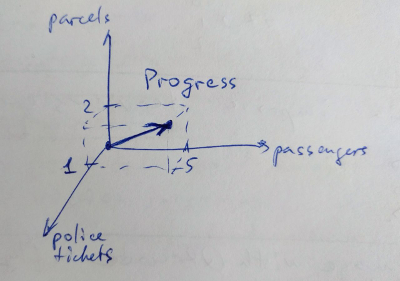 parcels
Progress
2
passengers
1
5
police
tickets